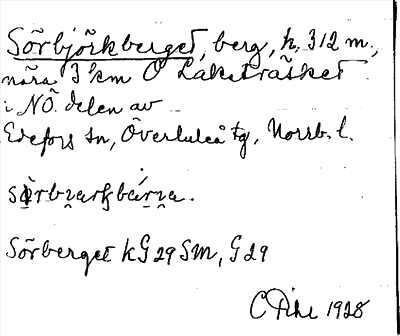 Sörbjörkberget, berg, h. 312 m.,
nära 3 km O Lakaträsket
i NÖ. delen av
Edefors sn, Överluleå tg, Norrb. l.
Sörberget kG29SM, G29
C Pihl 1928